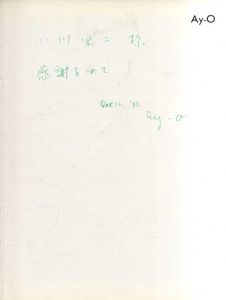 Ay-O
小川栄二様
感謝をこめて
Dec. 12. '82
Ay-O